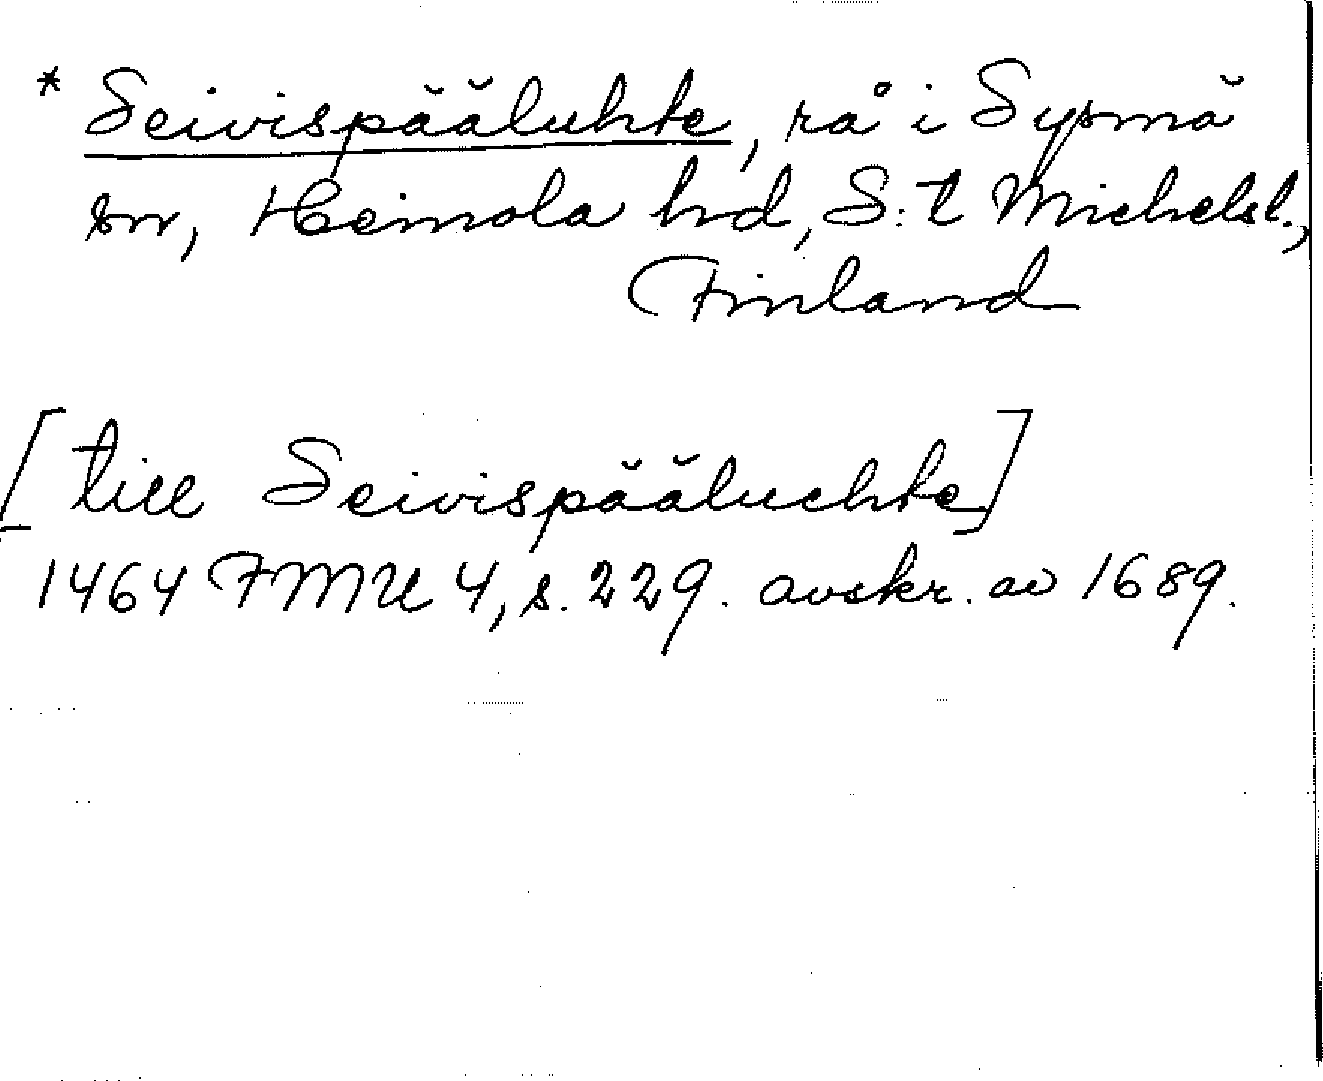 * Seivispääluhte, rå i Sysmä
sn, Heinola hd, S:t Michelsl.,
Finland
[till Seivispääluchte]
1464 FMU 4, s. 229. avskr. av 1689.